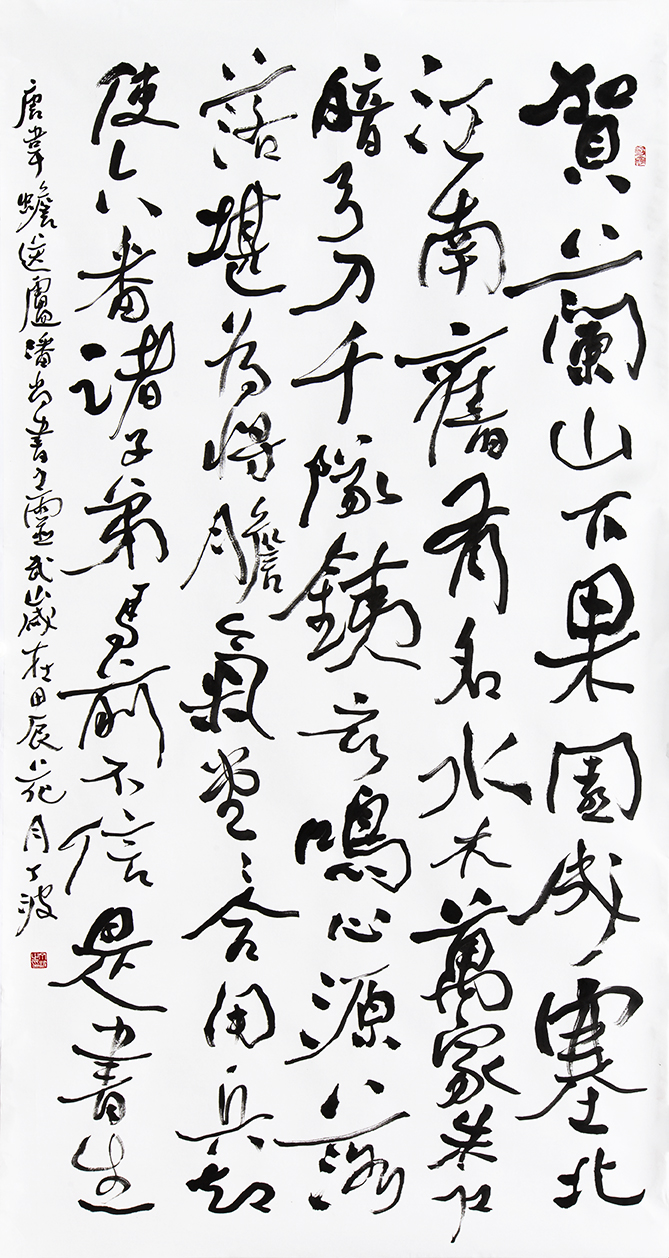 賀蘭山下果園成塞北
江南舊有名水木萬家朱戶
暗弓刀千隊鐵衣鳴心源落
落堪為將膽氣堂〻合用兵却
使六番諸子弟馬前不信是書生
唐韋蟾送盧潘尚書之靈武歲在甲辰花月波